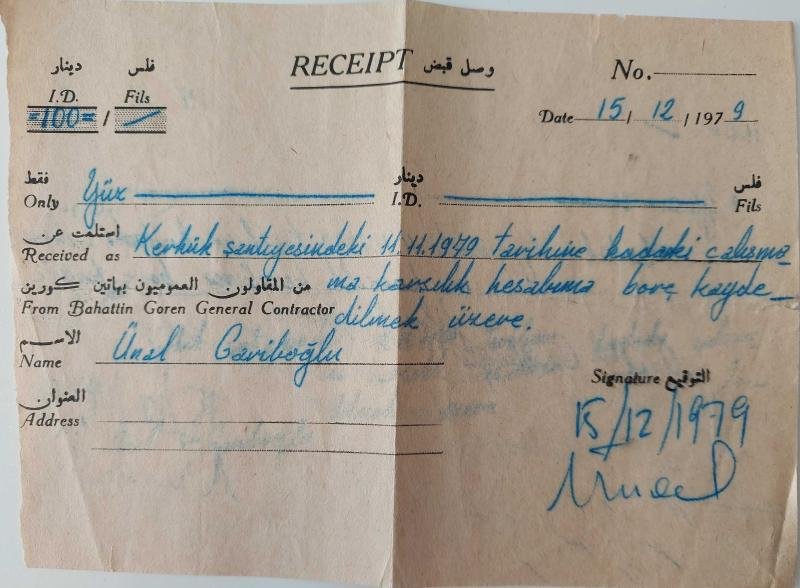 دينار فلس RECEIPT وصل قبض No.
I.D. Fils
=100= / — Date 15 / 12 / 1979
فقط دينار فلس
Only Yüz I.D. Fils
استلمت عن
Received as Kerkük şantiyesindeki 11.11.1979 tarihine kadarki calışma
من المقاولون العموميون بهاتين كورين ma karşılık hesabıma borç kayde-
From Bahattin Goren General Contractor dilmek üzere.
الاسم
Name Ünal Gariboğlu
Signature التوقيع
العنوان
Address
15/12/1979